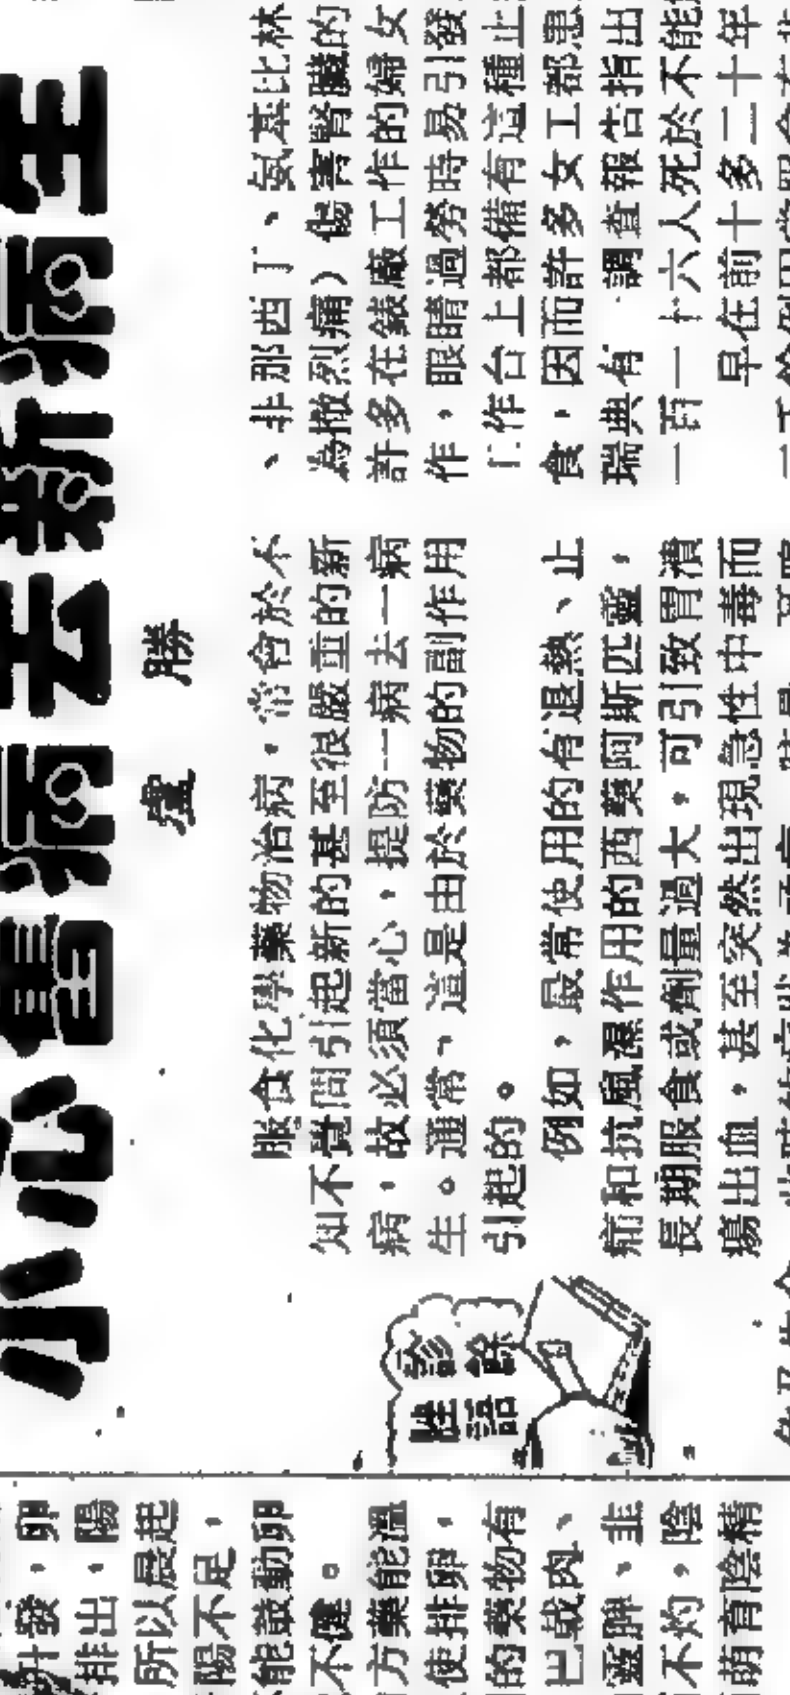 小心舊病去新病生
盧勝
服食化學藥物治病,常會於不
知不覺間引起新的甚至很嚴重的新
病,故必須當心,提防一病去一病
生。通常、這是由於藥物的副作用
引起的。
例如,最常使用的有退熱、止
痛和抗風濕作用的西藥阿斯匹靈,
長期服食或劑量過大,可引致胃潰
瘍出血,甚至突然出現急性中毒而
、非那西丁、氨基比林
為撒烈痛)傷害腎臟的
許多在錶廠工作的婦女
作,眼睛過勞時易引發
工作台上都備有這種止
食,因而許多女工都患
瑞典有調查報告指出
一百一十六人死於不能
早在前十多二十年
診餘
性語
升發,卵
排出,陽
所以晨起
陽不足,
能鼓動卵
不健。
方藥能溫
使排卵,
的藥物有
巴戟肉、
靈脾、韭
不灼,陰
萌有陰精